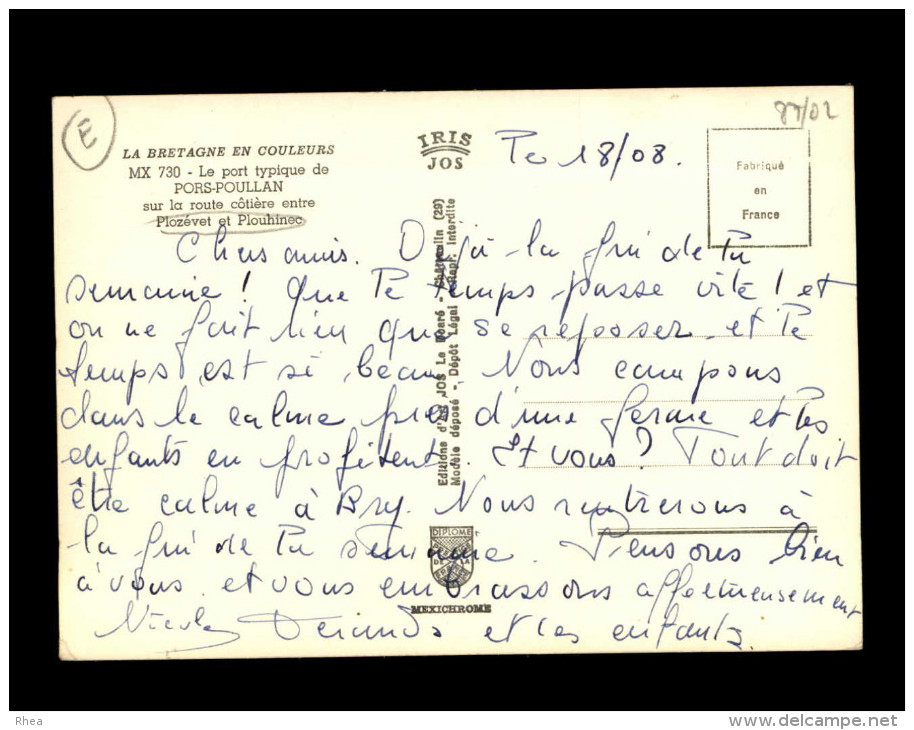 E
87/02
LA BRETAGNE EN COULEURS
MX 730 - Le port typique de
PORS-POULLAN
sur la route côtière entre
Plozévet et Plouhinec
IRIS
JOS
Le 18/08.
Fabriqué
en
France
Editions d'Art JOS Le Doaré - Châteaulin (29)
Modèle déposé - Dépôt Légal - Repr. interdite
Chers amis. Déjà la fin de la
semaine ! Que le temps passe vite ! et
on ne fait rien que se reposer et le
temps est si beau. Nous campons
dans le calme près d'une ferme et les
enfants en profitent. Et vous ? Tout doit
être calme à Bry. Nous rentrerons à
la fin de la semaine. Pensons bien
à vous et vous embrassons affectueusement
et les enfants.
DIPLOME
MEXICHROME
Rhea
www.delcampe.net